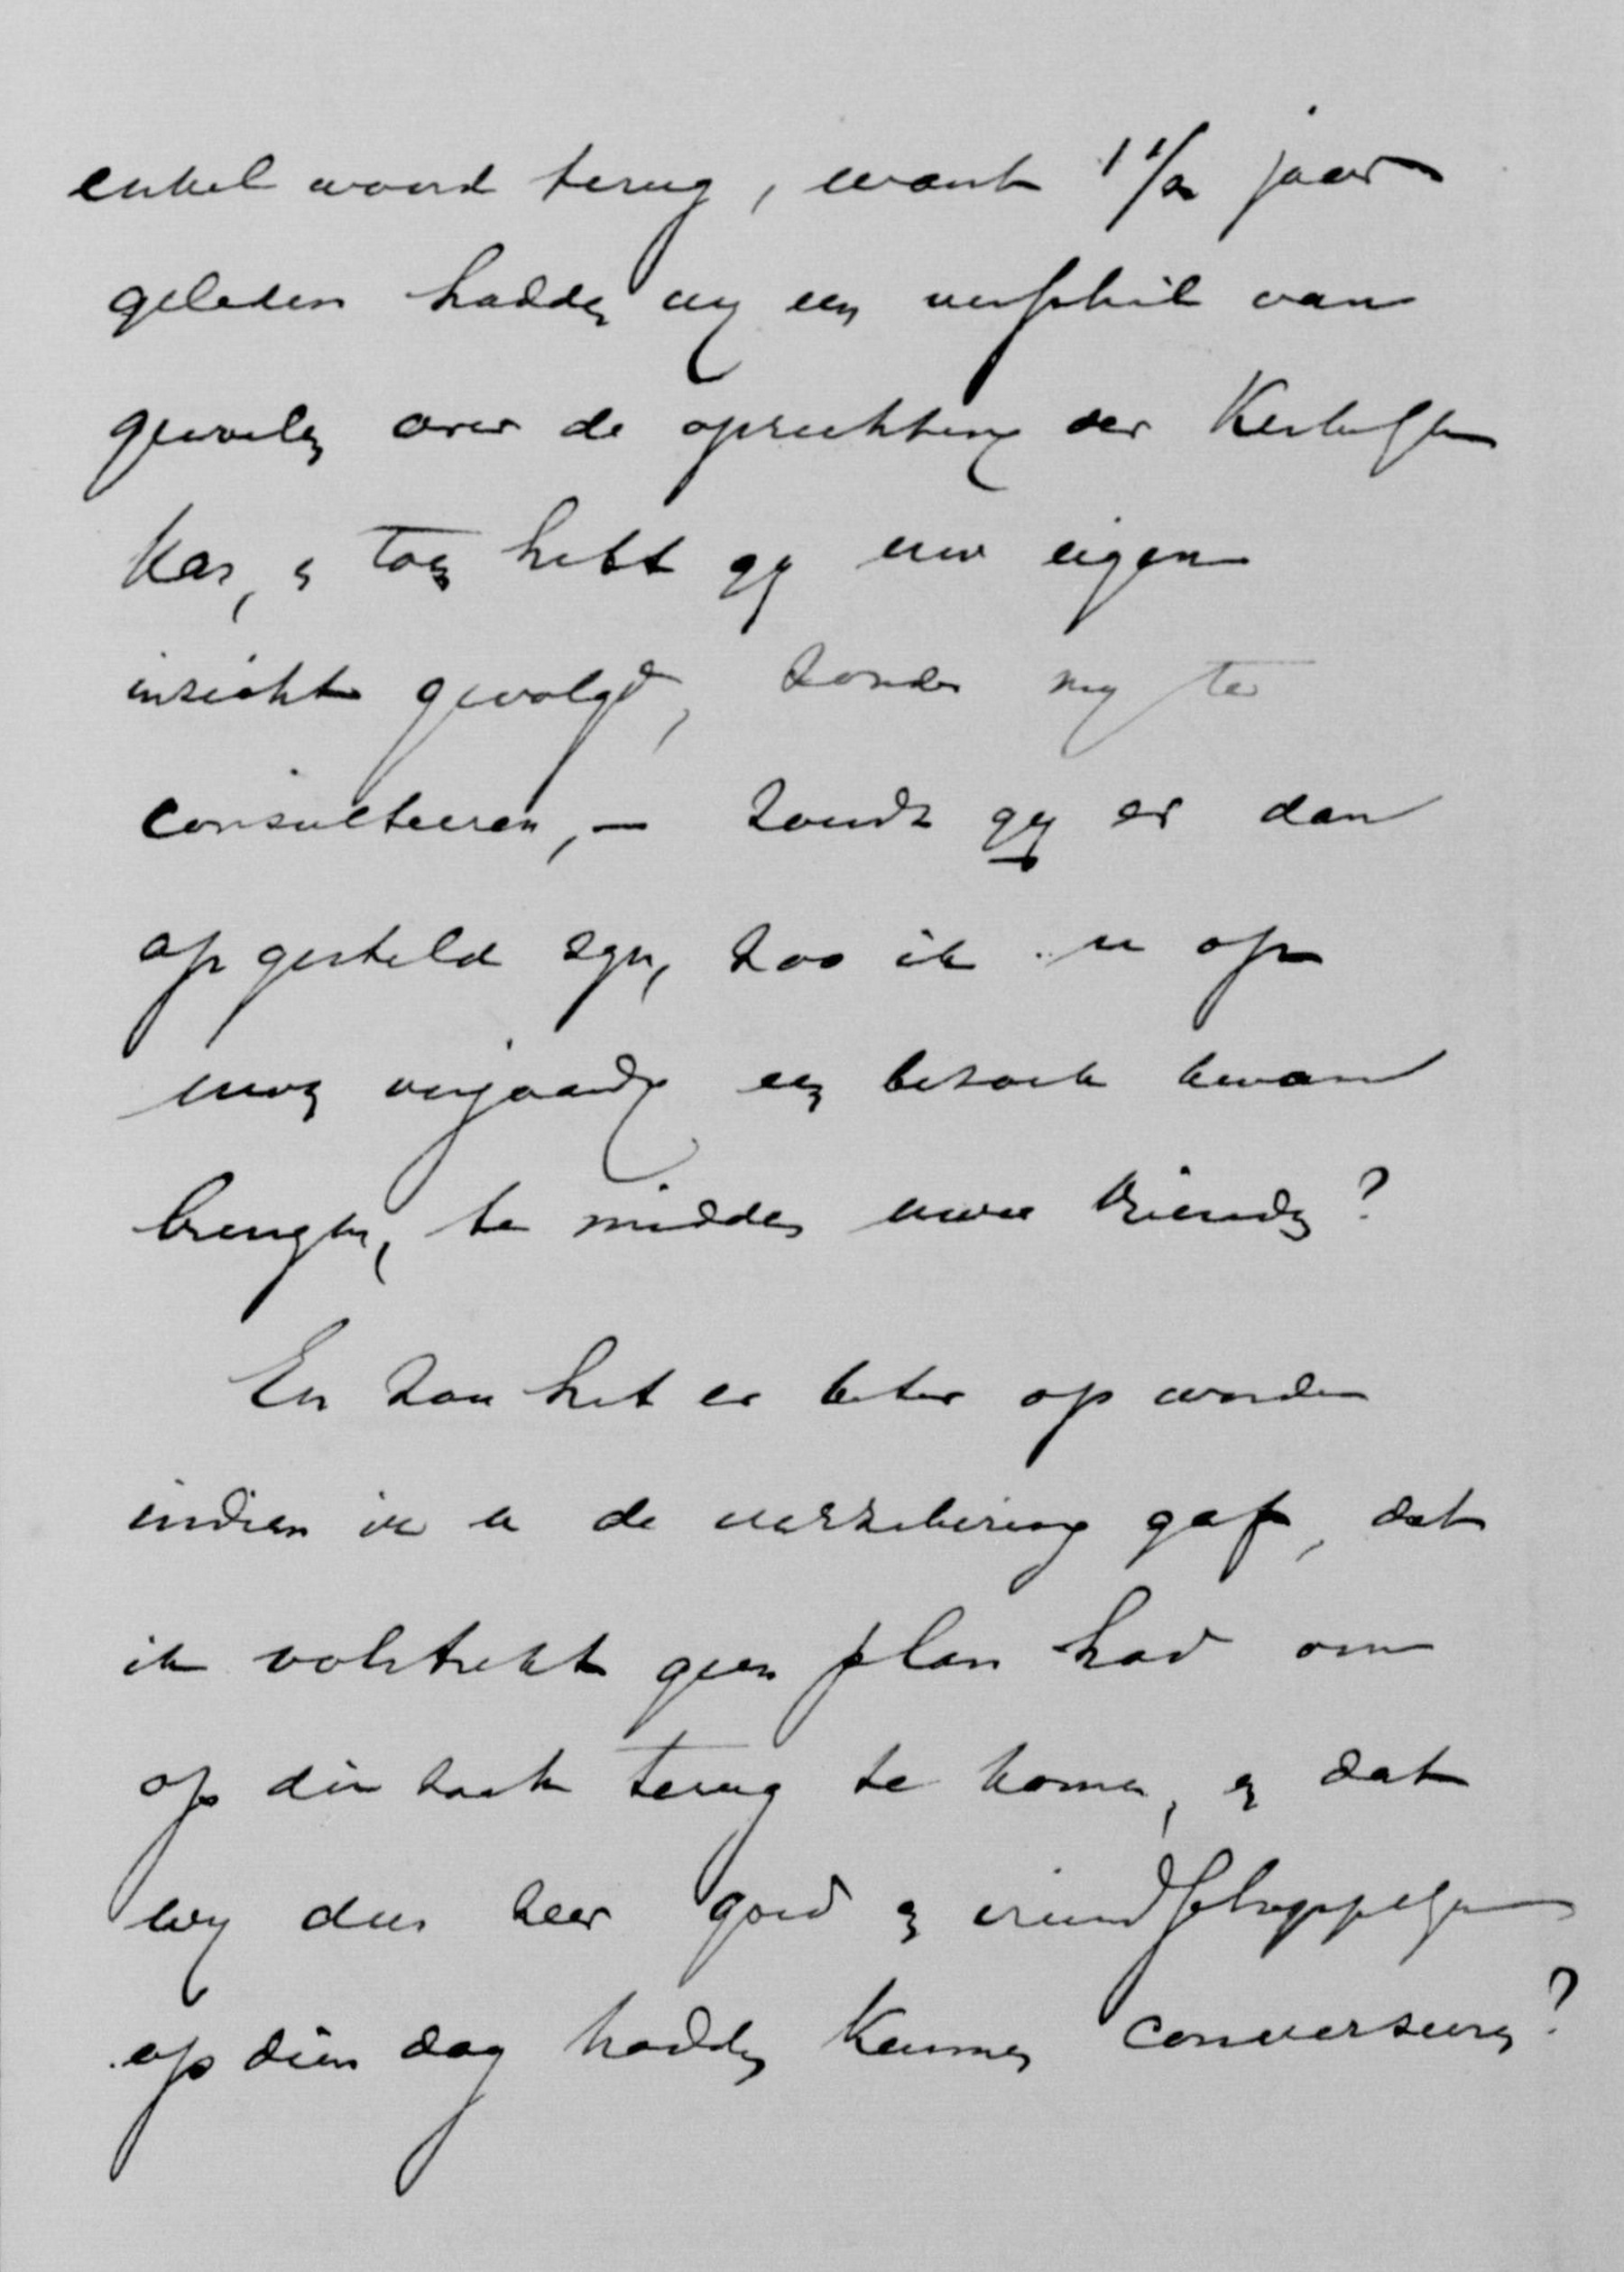 enkel woord terug, want 1 1/2 jaar
geleden hadden wy een verschil van
gevoelen over de oprichting der
Kas, en toen hebt gy uw eigen
inzicht gevolgd, zonder my te
consulteeren, — zoudt gy er dan
op gesteld zyn, zoo ik u op
uwen verjaardag een bezoek kwam
brengen, te midden uwer vrienden?
En zou het er beter op worden
indien ik u de verzekering gaf, dat
ik volstrekt geen plan had om
op die zaak terug te komen, en dat
wy dus zeer goed en vriendschappelyk
op dien dag hadden kunnen converseeren?